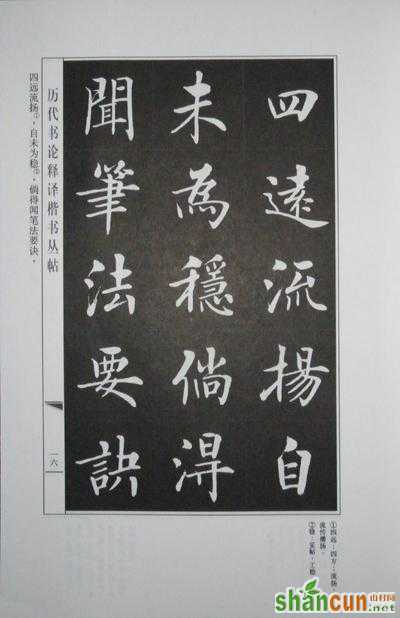 四遠流揚自
未為穩倘淂
聞筆法要訣
历代书论释译楷书丛帖
一六
四远流扬①，自未为稳②，倘得闻笔法要诀，
①四远：四方；流扬：
流传播扬。
②稳：安帖，工稳
shancun
山村网
.net